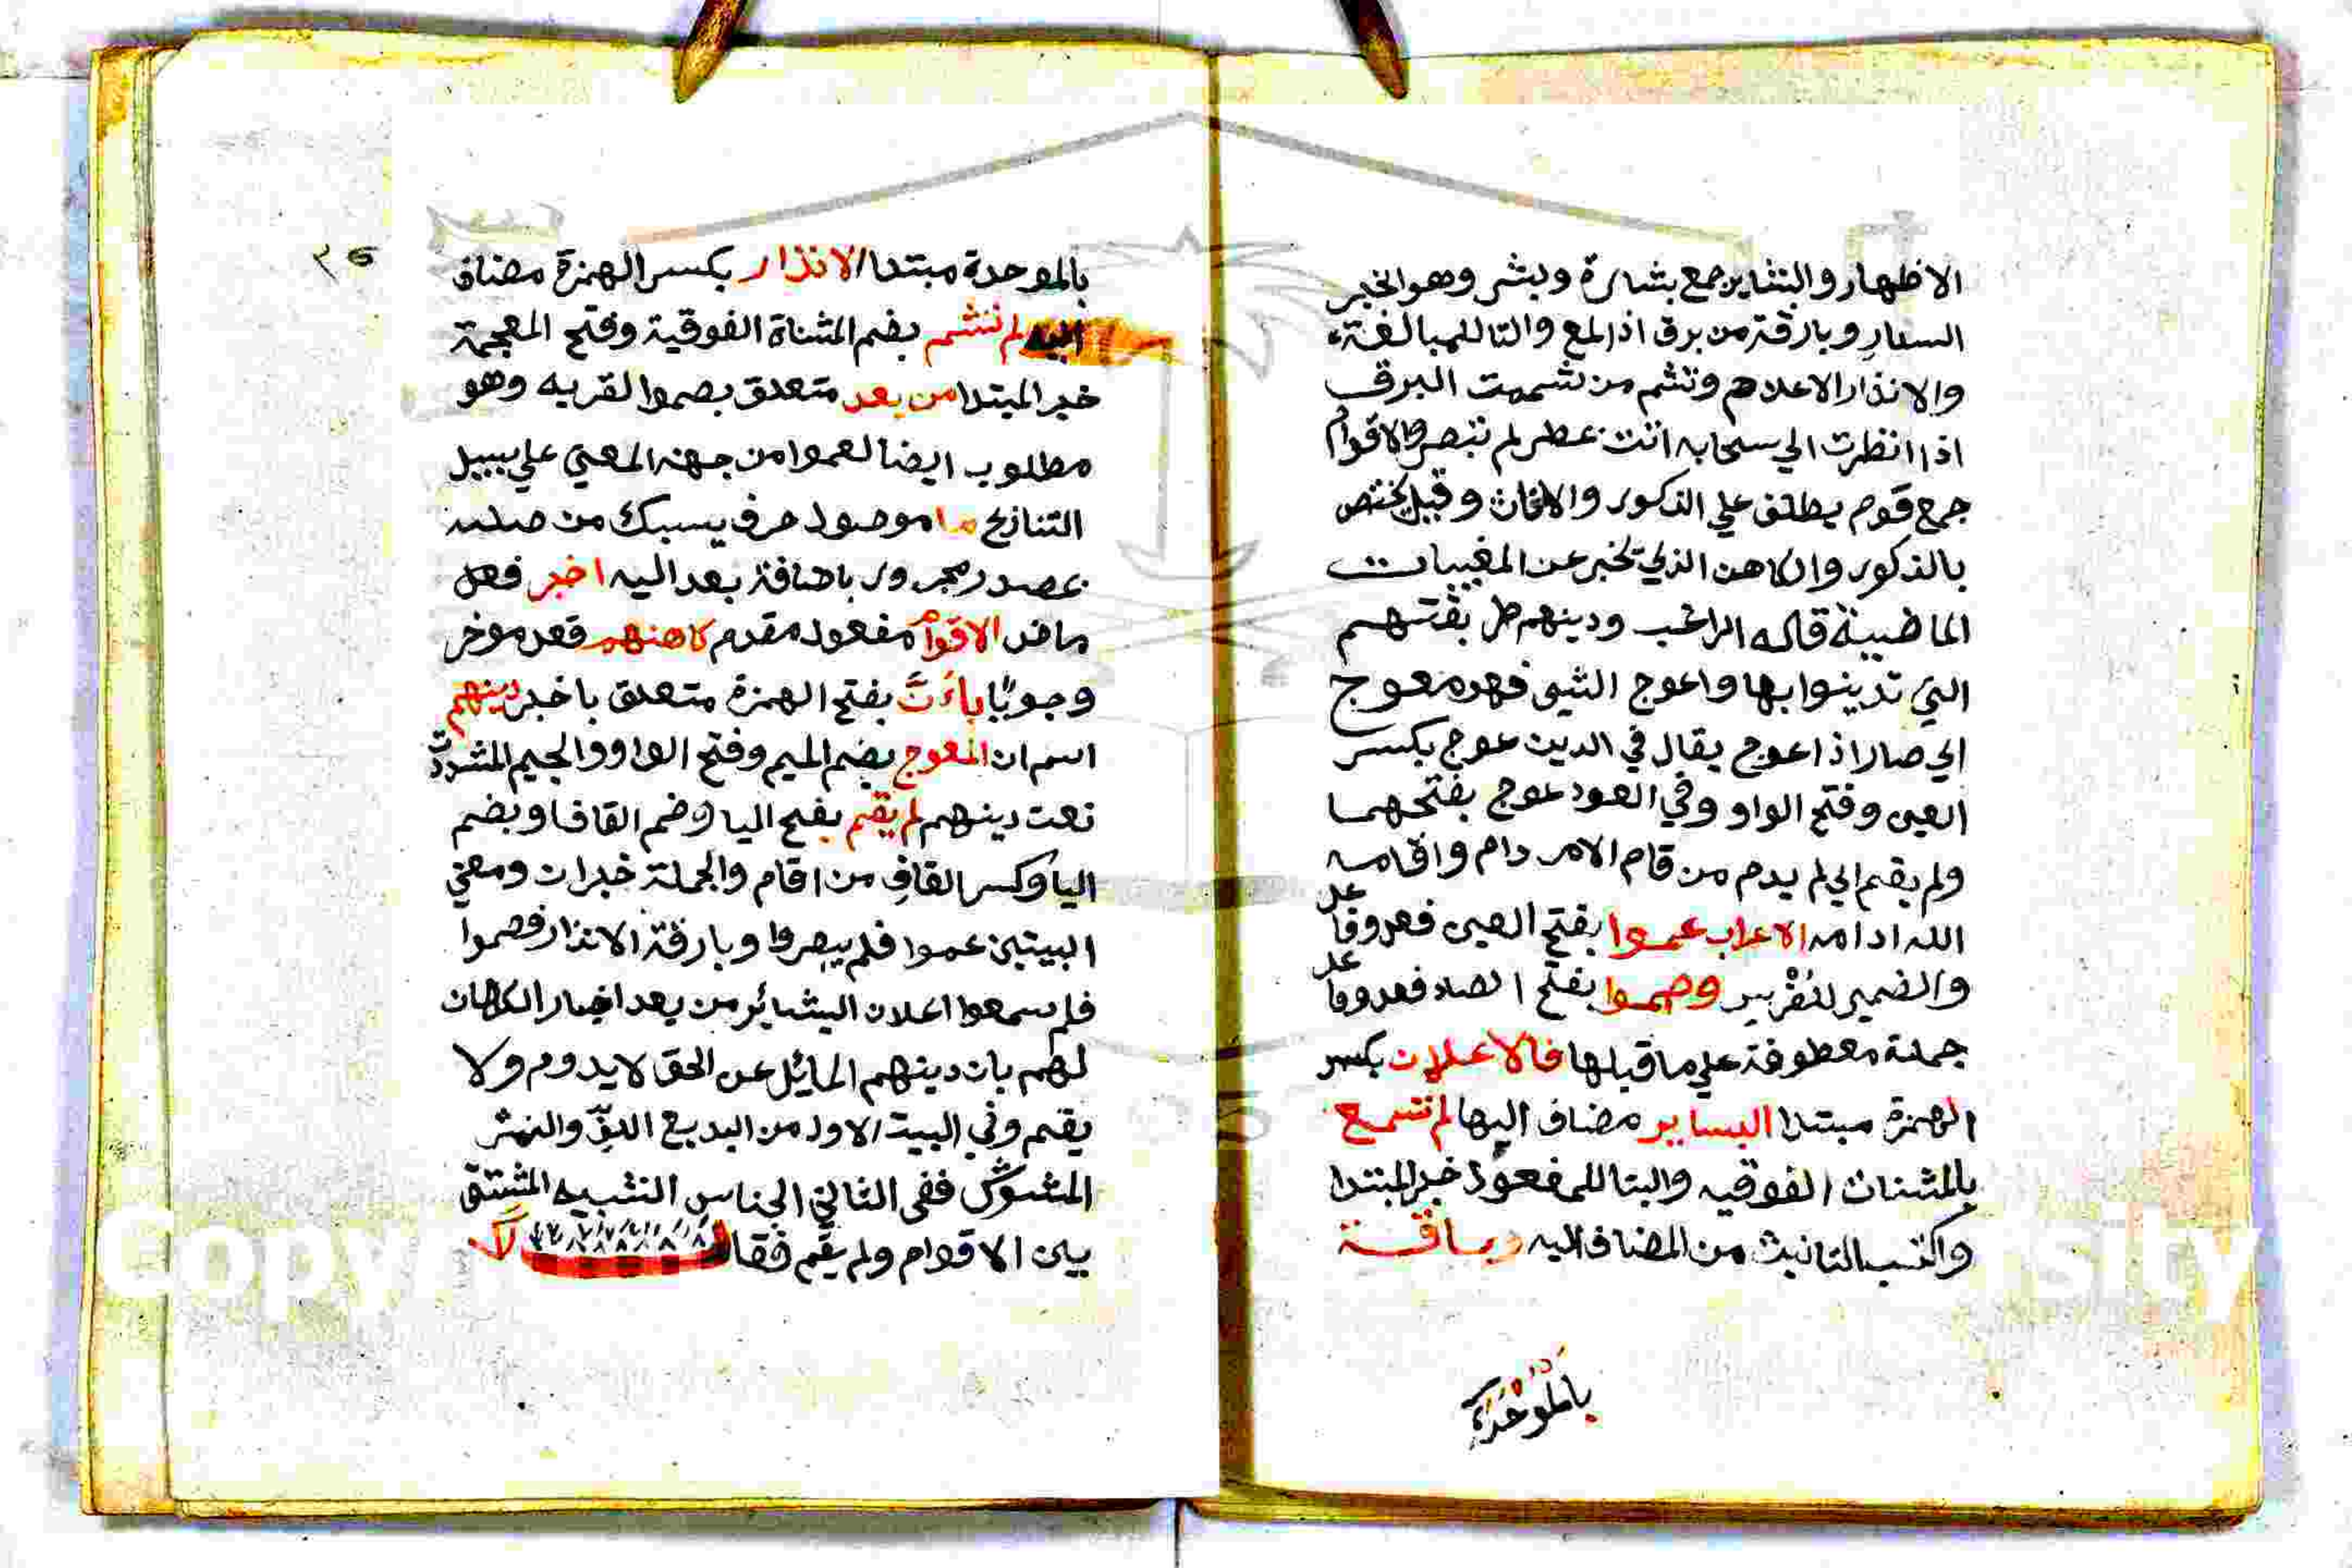 الاظهار والبشاير جمع بشارة وبشر وهو الخبر
السار وبارقة من برق اذا لمع والتا للمبالغة
والانذار الاعلام وتشم من شممت البرق
اذا انظرت الي سحابه انت عطر لم تبصرها الاقوام
جمع قوم يطلق علي الذكور والاناث وقيل يختص
بالذكور والكاهن الذي يخبر عن المغيبات
الماضية قاله الراغب ودينهم طريقتهم
التي تدينوا بها واعوج الشي فهو معوج
اي صار اذا عوج يقال في الدين عوج بكسر
العين وفتح الواو وفي العود عوج بفتحهما
ولم يقم اي لم يدم من قام الامر دام واقامه
الله ادامه الاعراب عموا بفتح العين فعل وفاعل
والضمير للقريه وصموا بفتح الصاد فعل وفاعل
جملة معطوفة علي ما قبلها فالاعلان بكسر
الهمزة مبتدا البساير مضاف اليها لم تسمع
بالمثنات الفوقيه والبنا للمفعول خبر المبتدا
واكتسب التانيث من المضاف اليه وبارقة
بالموحدة
بالموحدة مبتدا الانذار بكسر الهمزة مضاف
اليه لم تشم بضم المثناة الفوقية وفتح المعجمة
خبر المبتدا من بعد متعلق بصموا لقربه وهو
مطلوب ايضا لعموا من جهة المعني علي سبيل
التنازع ما موصول حرفي يسبك من صلته
بمصدر مجرور باضافة بعد اليه اخبر فعل
ماض الاقوام مفعول مقدم كاهنهم فعل موخر
وجوبا بان بفتح الهمزة متعلق باخبر دينهم
اسم ان المعوج بضم الميم وفتح الواو والجيم المشددة
نعت دينهم لم يقم بفتح اليا وضم القاف او بضم
اليا وكسر القاف من اقام والجملة خبر ان ومعني
البيتين عموا فلم يبصروا وبارقة الانذار فصموا
فلم يسمعوا اعلان البشائر من بعد اخبار الكاهن
لهم بان دينهم المائل عن الحق لا يدوم ولا
يقم وفي البيت الاول من البديع اللف والنشر
المشوش ففي الثاني الجناس الشبيه المشتق
بين الاقوام ولم يقم فقال